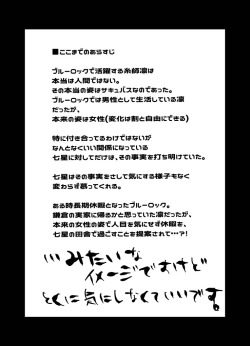 ■ここまでのあらすじ
ブルーロックで活躍する糸師凛は
本当は人間ではない。
その本当の姿はサキュバスなのであった。
ブルーロックでは男性として生活している凛
だったが、
本来の姿は女性(変化は割と自由にできる)
特に付き合ってるわけではないが
なんとなくいい関係になっている
七星に対してだけは、その事実を打ち明けていた。
七星はその事実をさして気にする様子もなく
変わらず慕ってくれる。
ある時長期休暇となったブルーロック。
鎌倉の実家に帰るかと思っていた凛だったが、
本来の女性の姿で人目を気にせず休暇を、
七星の田舎で過ごすことを提案されて…?!
…みたいな
イメージですけど
とくに気にしなくていいです。